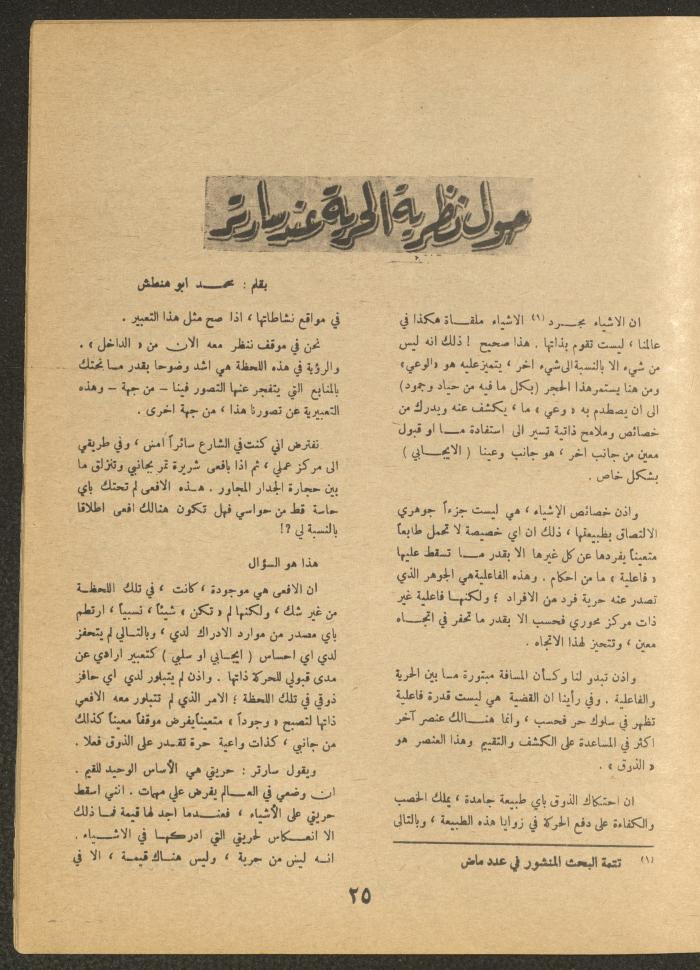 حول نظرية الحرية عند سارتر
بقلم : محمد ابو هنطش
ان الاشياء مجرد (١) الاشياء ملقاة هكذا في
عالمنا ، ليست تقوم بذاتها . هذا صحيح ! ذلك انه ليس
من شيء الا بالنسبة الى شيء اخر ، يتميز عليه هو «الوعي»
ومن هنا يستمر هذا الحجر (بكل ما فيه من حياد وجمود)
الى ان يصطدم به « وعي » ما ، يكشف عنه ويدرك من
خصائص وملامح ذاتية تسير الى استفادة ما او قبول
معين من جانب اخر ، هو جانب وعينا ( الايجابي )
بشكل خاص .
واذن خصائص الاشياء ، هي ليست جزءاً جوهري
الالتصاق بطبيعتها ، ذلك ان اي خصيصة لا تحمل طابعاً
متعيناً يفردها عن كل غيرها الا بقدر ما تسقط عليها
« فاعلية » ما من احكام . وهذه الفاعلية هي الجوهر الذي
تصدر عنه حرية فرد من الافراد ؛ ولكنها فاعلية غير
ذات مركز محوري فحسب الا بقدر ما تحفر في اتجاه
معين ، وتتحيز لهذا الاتجاه .
واذن تبدو لنا وكأن المسافة مبتورة ما بين الحرية
والفاعلية . وفي رأينا ان القضية هي ليست قدرة فاعلية
تظهر في سلوك حر فحسب ، وانما هنالك عنصر آخر
اكثر في المساعدة على الكشف والتقييم وهذا العنصر هو
« الذوق » .
ان احتكاك الذوق باي طبيعة جامدة ، يملك الخصب
والكفاءة على دفع الحركة في زوايا هذه الطبيعة ، وبالتالي
(١) تتمة البحث المنشور في عدد ماض
في مواقع نشاطاتها ، اذا صح مثل هذا التعبير .
نحن في موقف ننظر معه الان من « الداخل » .
والرؤية في هذه اللحظة هي اشد وضوحا بقدر ما نحتك
بالمنابع التي يتفجر عنها التصور فينا – من جهة – وهذه
التعبيرية عن تصورنا هذا ، من جهة اخرى .
نفترض اني كنت في الشارع سائراً امس ، وفي طريقي
الى مركز عملي ، ثم اذا بافعى شريرة تمر بجانبي وتنزلق ما
بين حجارة الجدار المجاور . هذه الافعى لم تحتك باي
حاسة قط من حواسي فهل تكون هنالك افعى اطلاقا
بالنسبة لي ؟!
هذا هو السؤال
ان الافعى هي موجودة ، كانت ، في تلك اللحظة
من غير شك ، ولكنها لم « تكن » شيئاً ، نسبياً ، ارتطم
باي مصدر من موارد الادراك لدي ، وبالتالي لم يتحفز
لدي اي احساس ( ايجابي او سلبي ) كتعبير ارادي عن
مدى قبولي للحركة ذاتها . واذن لم يتبلور لدي اي حافز
ذوقي في تلك اللحظة ؛ الامر الذي لم تتبلور معه الافعي
ذاتها لتصبح « وجوداً » متعيناً يفرض موقفاً معيناً كذلك
من جانبي ، كذات واعية حرة تقدر على الذوق فعلا .
ويقول سارتر : حريتي هي الأساس الوحيد للقيم .
ان وضعي في العالم يفرض علي مهمات . انني اسقط
حريتي على الأشياء ، فعندما اجد لها قيمة فما ذلك
الا انعكاس لحريتي التي ادركها في الاشياء .
انه ليس من حرية ، وليس هناك قيمة ، الا في
٢٥